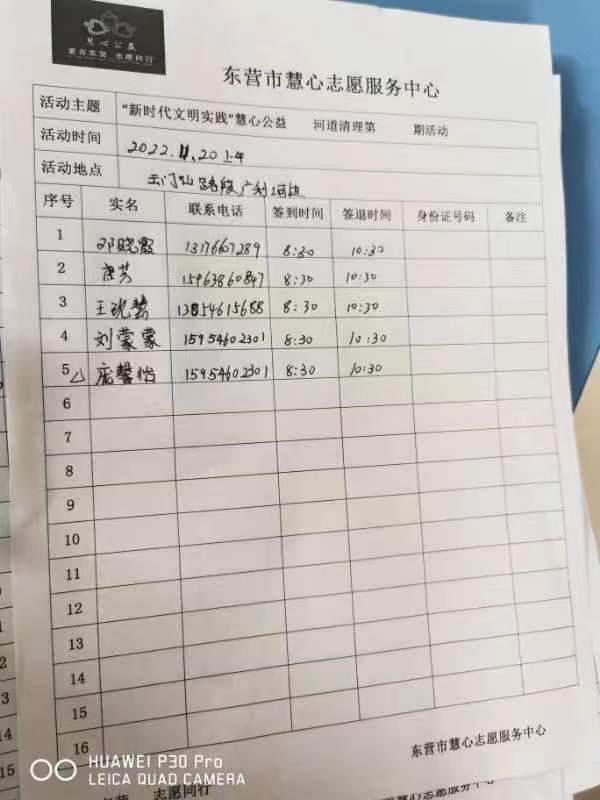 慧心公益
爱在东营 志愿同行
东营市慧心志愿服务中心
活动主题 “新时代文明实践”慧心公益 河道清理第 期活动
活动时间 2022.11.20 上午
活动地点 路段广利河边
序号 实名 联系电话 签到时间 签退时间 身份证号码 备注
1 邓晓霞 1317667289 8:30 10:30
2 唐芳 15963860847 8:30 10:30
3 王 13854615688 8:30 10:30
4 刘蒙蒙 15954602301 8:30 10:30
5 庞馨怡 15954602301 8:30 10:30
6
7
8
9
10
11
12
13
14
15
16
东营市慧心志愿服务中心
HUAWEI P30 Pro
LEICA QUAD CAMERA
志愿同行